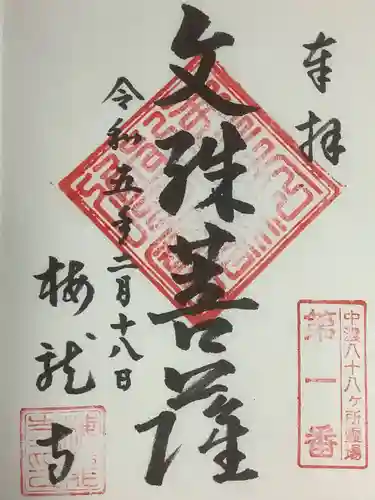 奉拝
中通八十八ケ所霊場
第一番
文珠菩薩
令和五年二月十八日
梅龍寺